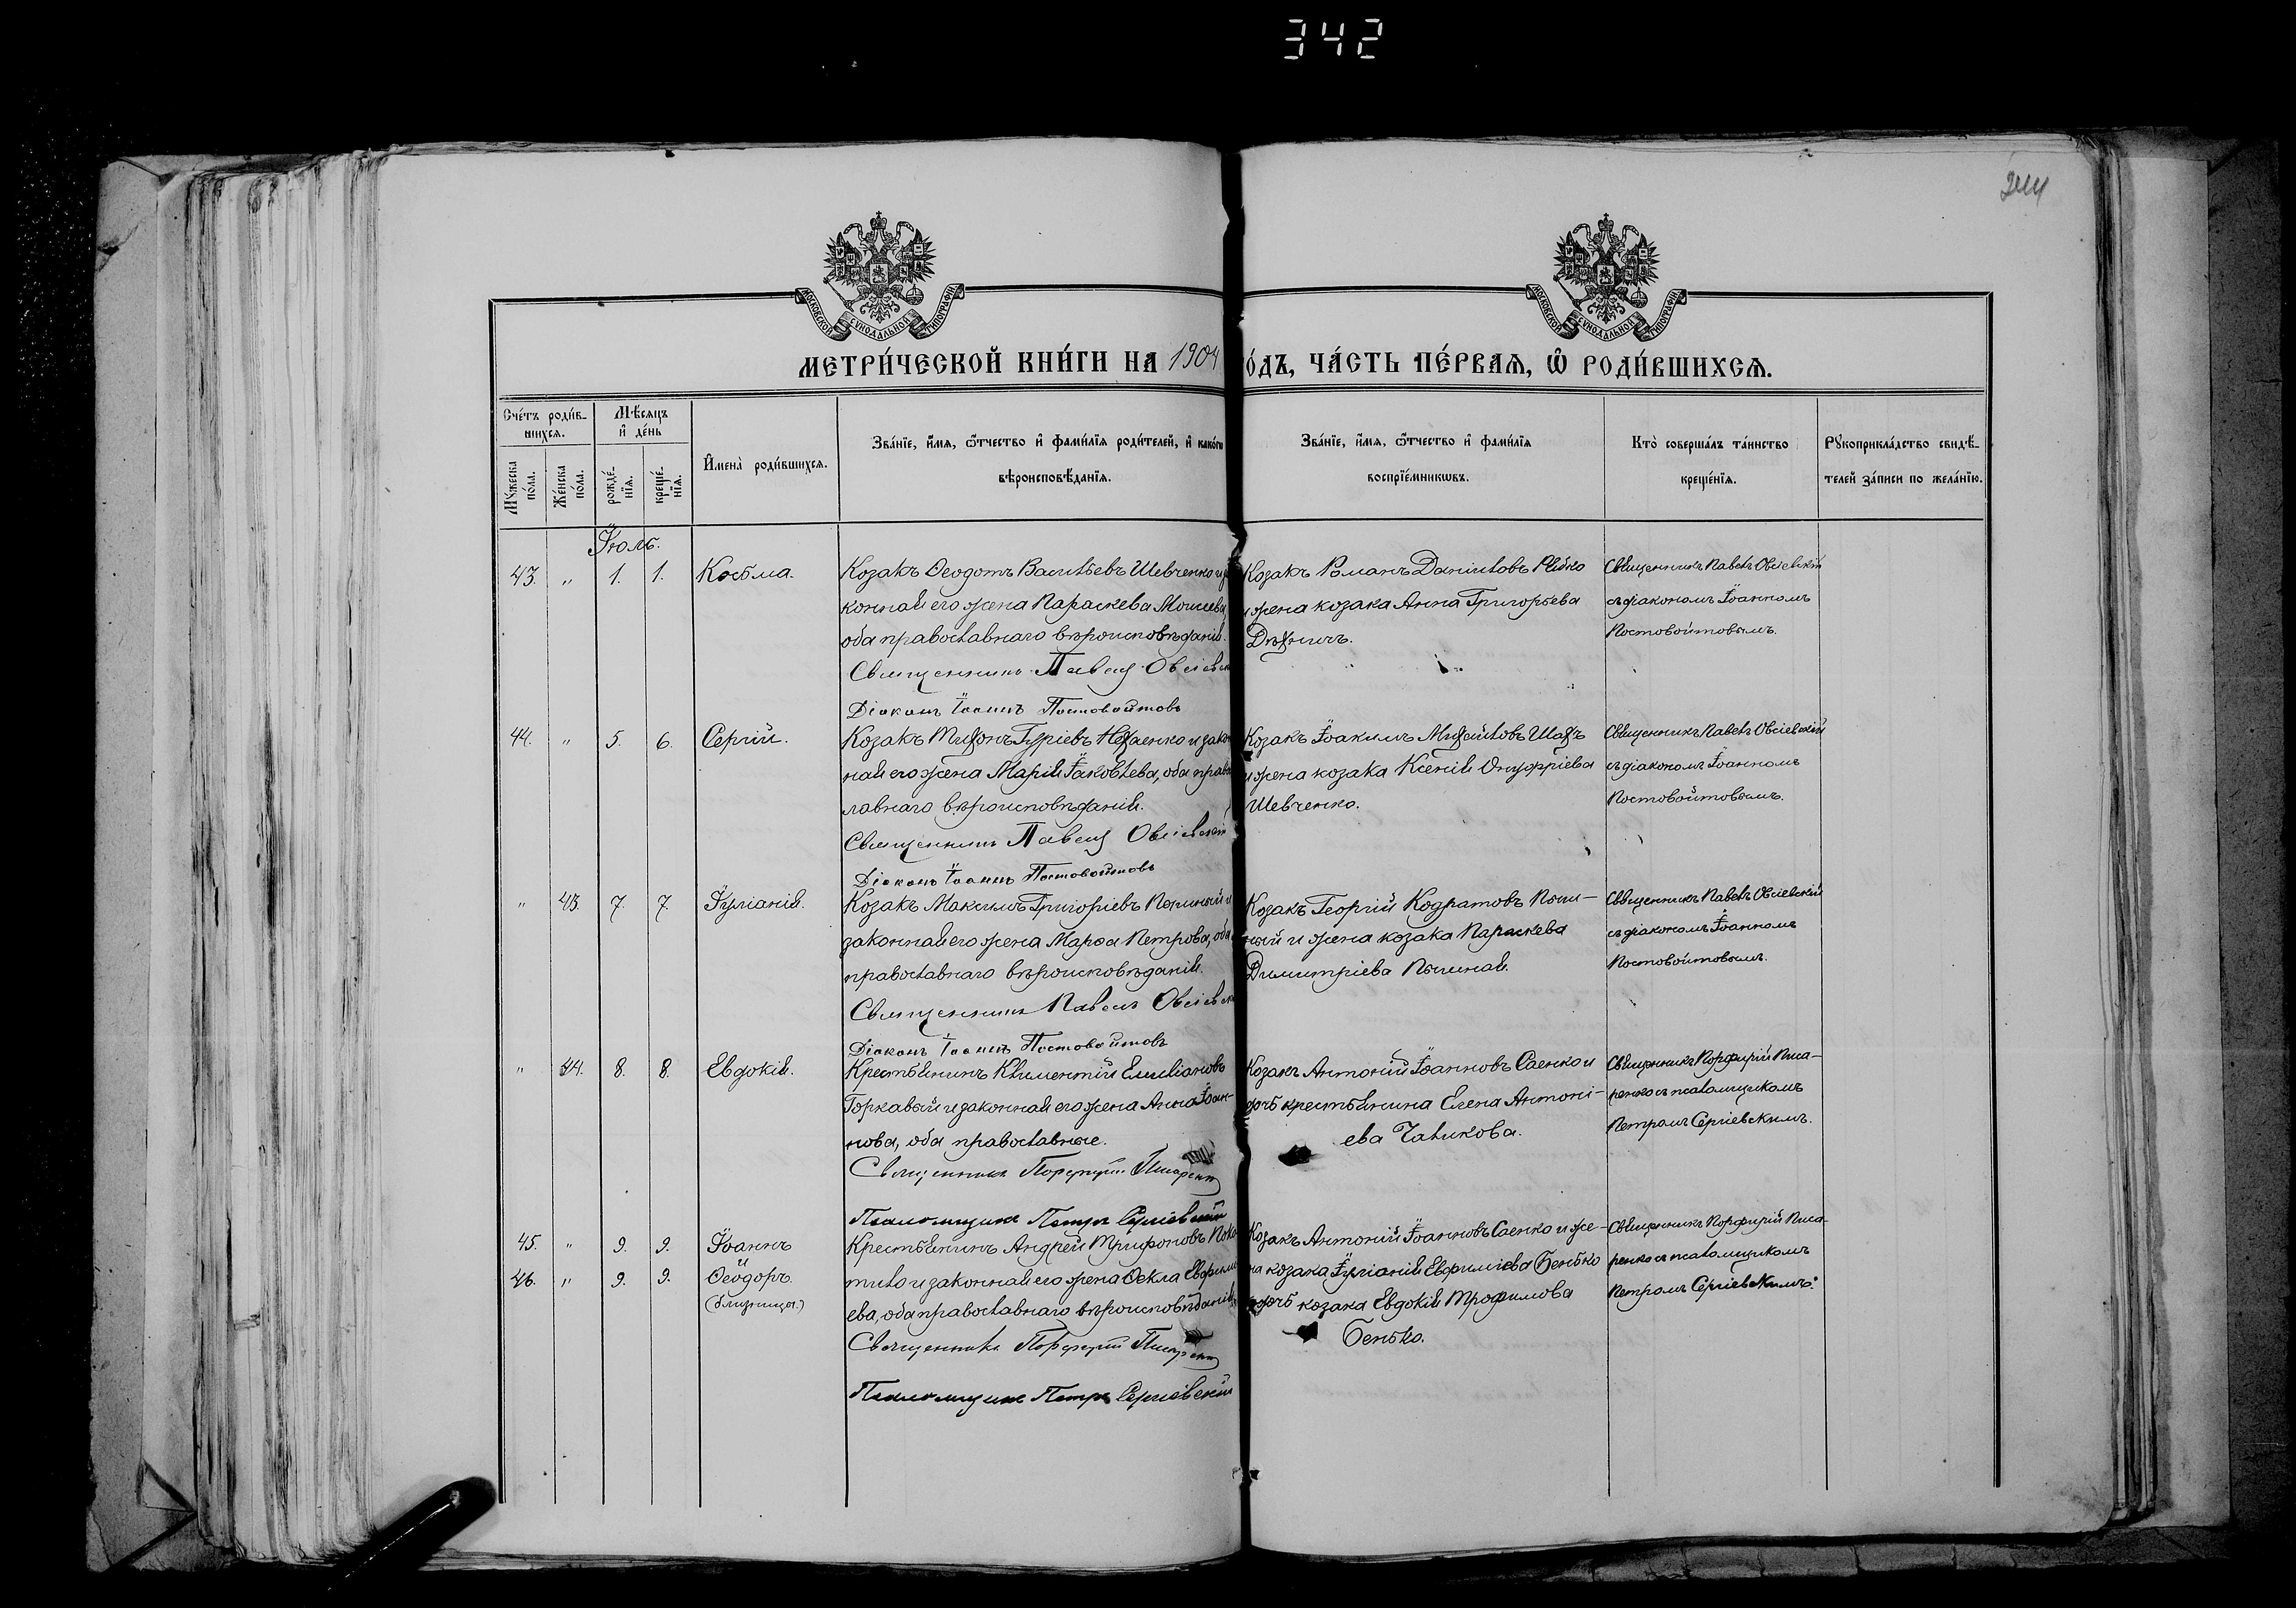 342
244
МОСКОВСКОЙ СѴНОДАЛЬНОЙ ТИПОГРАФІИ
МОСКОВСКОЙ СѴНОДАЛЬНОЙ ТИПОГРАФІИ
МЕТРИ́ЧЕСКОЙ КНИ́ГИ НА 1904 О́ДЪ, ЧА́СТЬ ПЕ́РВАѦ, Ѡ҆ РОДИ́ВШИХСѦ.
Сче́тъ роди́в-
шихсѧ.
Мѣ́сѧцъ
и҆ де́нь
Мꙋ́жеска
по́ла.
Же́нска
по́ла.
рожде́-
нїѧ.
креще́-
нїѧ.
И҆мена̀ роди́вшихсѧ.
Зва́нїе, и҆́мѧ, ѻ҆́тчество и҆ фами́лїѧ роди́телей, и҆ како́гѡ
вѣроисповѣ́данїѧ.
Зва́нїе, и҆́мѧ, ѻ҆́тчество и҆ фами́лїѧ
воспрїе́мникѡвъ.
Кто̀ соверша́лъ та́инство
креще́нїѧ.
Рꙋкоприкла́дство свидѣ́-
телей за́писи по жела́нїю.
Іюль.
43. " 1. 1. Косьма.
Козакъ Ѳеодотъ Васильевъ Шевченко и за
конная его жена Параскева Моисеева
оба православнаго вѣроисповѣданія.
Священникъ Павелъ Овсіевск
Діаконъ Іоаннъ Постовойтовъ
Козакъ Романъ Даніиловъ
и жена козака Анна Григорьева
Священникъ Павелъ Овсіевскій
съ діакономъ Іоанномъ
Постовойтовымъ.
44. " 5. 6. Сергій.
Козакъ Тихонъ Гуріевъ и закон
ная его жена Марія Іаковлева, оба право
лавнаго вѣроисповѣданія.
Священникъ Павелъ Овсіевскій
Діаконъ Іоаннъ Постовойтовъ
Козакъ Іоакимъ Михайловъ Шахъ
и жена козака Ксенія Онуфріева
Шевченко.
Священникъ Павелъ Овсіевскій
съ діакономъ Іоанномъ
Постовойтовымъ.
" 43. 7. 7. Іуліанія.
Козакъ Максимъ Григоріевъ и
законная его жена Марѳа Петрова, оба
православнаго вѣроисповѣданія.
Священникъ Павелъ Овсіевск
Діаконъ Іоаннъ Постовойтовъ
Козакъ Георгій Кодратовъ
ный и жена козака Параскева
Димитріева
Священникъ Павелъ Овсіевскій
съ діакономъ Іоанномъ
Постовойтовымъ.
" 44. 8. 8. Евдокія.
Крестьянинъ Климентій Емиліановъ
Горкавый и законная его жена Анна Іоан-
нова, оба православные.
Священникъ Порфирій Писаренко
Псаломщикъ Петръ Сергіевскій
Козакъ Антоній Іоанновъ Саенко и
дочь крестьянина Елена Антоні-
ева Чаликова.
Священникъ Порфирій Писа-
ренко съ псаломщикомъ
Петромъ Сергіевскимъ.
45. " 9. 9. Іоаннъ
и
46. " 9. 9. Ѳеодоръ
(близнецы.)
Крестьянинъ Андрей Трифоновъ Пока
тило и законная его жена Ѳекла Евфими
ева, оба православнаго вѣроисповѣданія.
Священникъ Порфирій Писаренко
Псаломщикъ Петръ Сергіевскій
Козакъ Антоній Іоанновъ Саенко и же-
на козака Іуліанія Евфиміева Бенько
дочь козака Евдокія Трофимова
Бенько.
Священникъ Порфирій Писа-
ренко съ псаломщикомъ
Петромъ Сергіевскимъ.